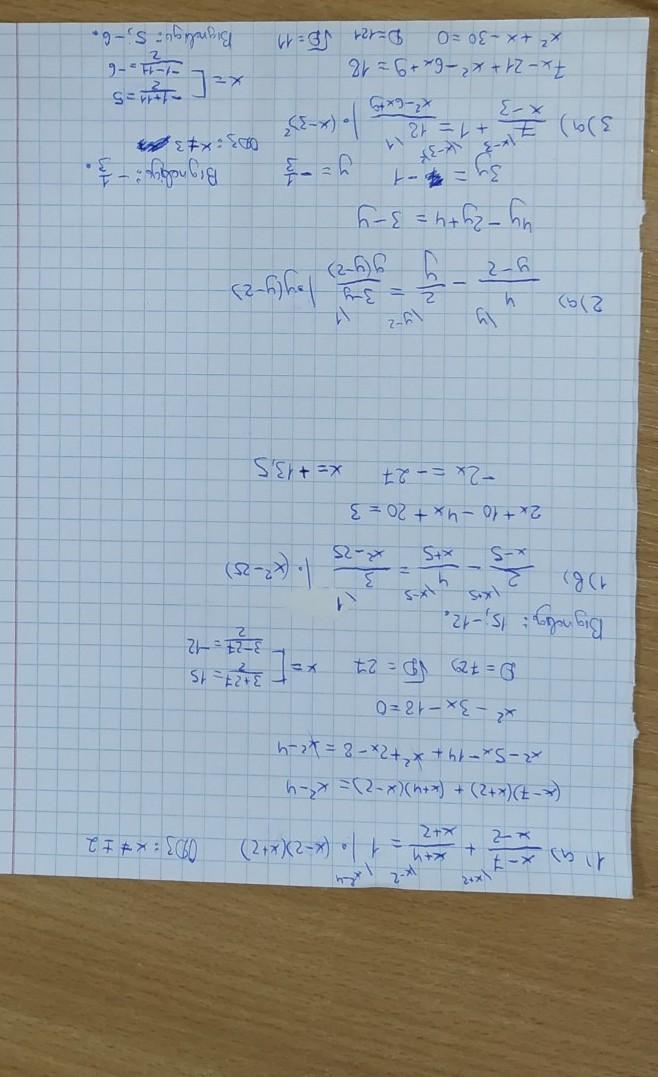 1) a) \frac{x-7}{x-2} + \frac{x+4}{x+2} = 1 | · (x-2)(x+2) ОДЗ: x ≠ ± 2
(x-7)(x+2) + (x+4)(x-2) = x²-4
x²-5x-14 + x²+2x-8 = x²-4
x² - 3x - 18 = 0
D = 729 √D = 27 x = [ \frac{3+27}{2} = 15 \frac{3-27}{2} = -12
Відповідь: 15; -12.
1) в) \frac{2}{x-5} - \frac{4}{x+5} = \frac{3}{x²-25} | · (x²-25)
2x + 10 - 4x + 20 = 3
-2x = -27 x = +13,5
2) а) \frac{4}{y-2} - \frac{2}{y} = \frac{3-y}{y(y-2)} | · y(y-2)
4y - 2y + 4 = 3 - y
3y = -1 y = -\frac{1}{3} Відповідь: -\frac{1}{3}.
3) а) \frac{7}{x-3} + 1 = \frac{18}{x²-6x+9} | · (x-3)² ОДЗ: x ≠ 3
7x - 21 + x² - 6x + 9 = 18
x² + x - 30 = 0 D = 121 √D = 11 x = [ \frac{-1+11}{2} = 5 \frac{-1-11}{2} = -6
Відповідь: 5; -6.